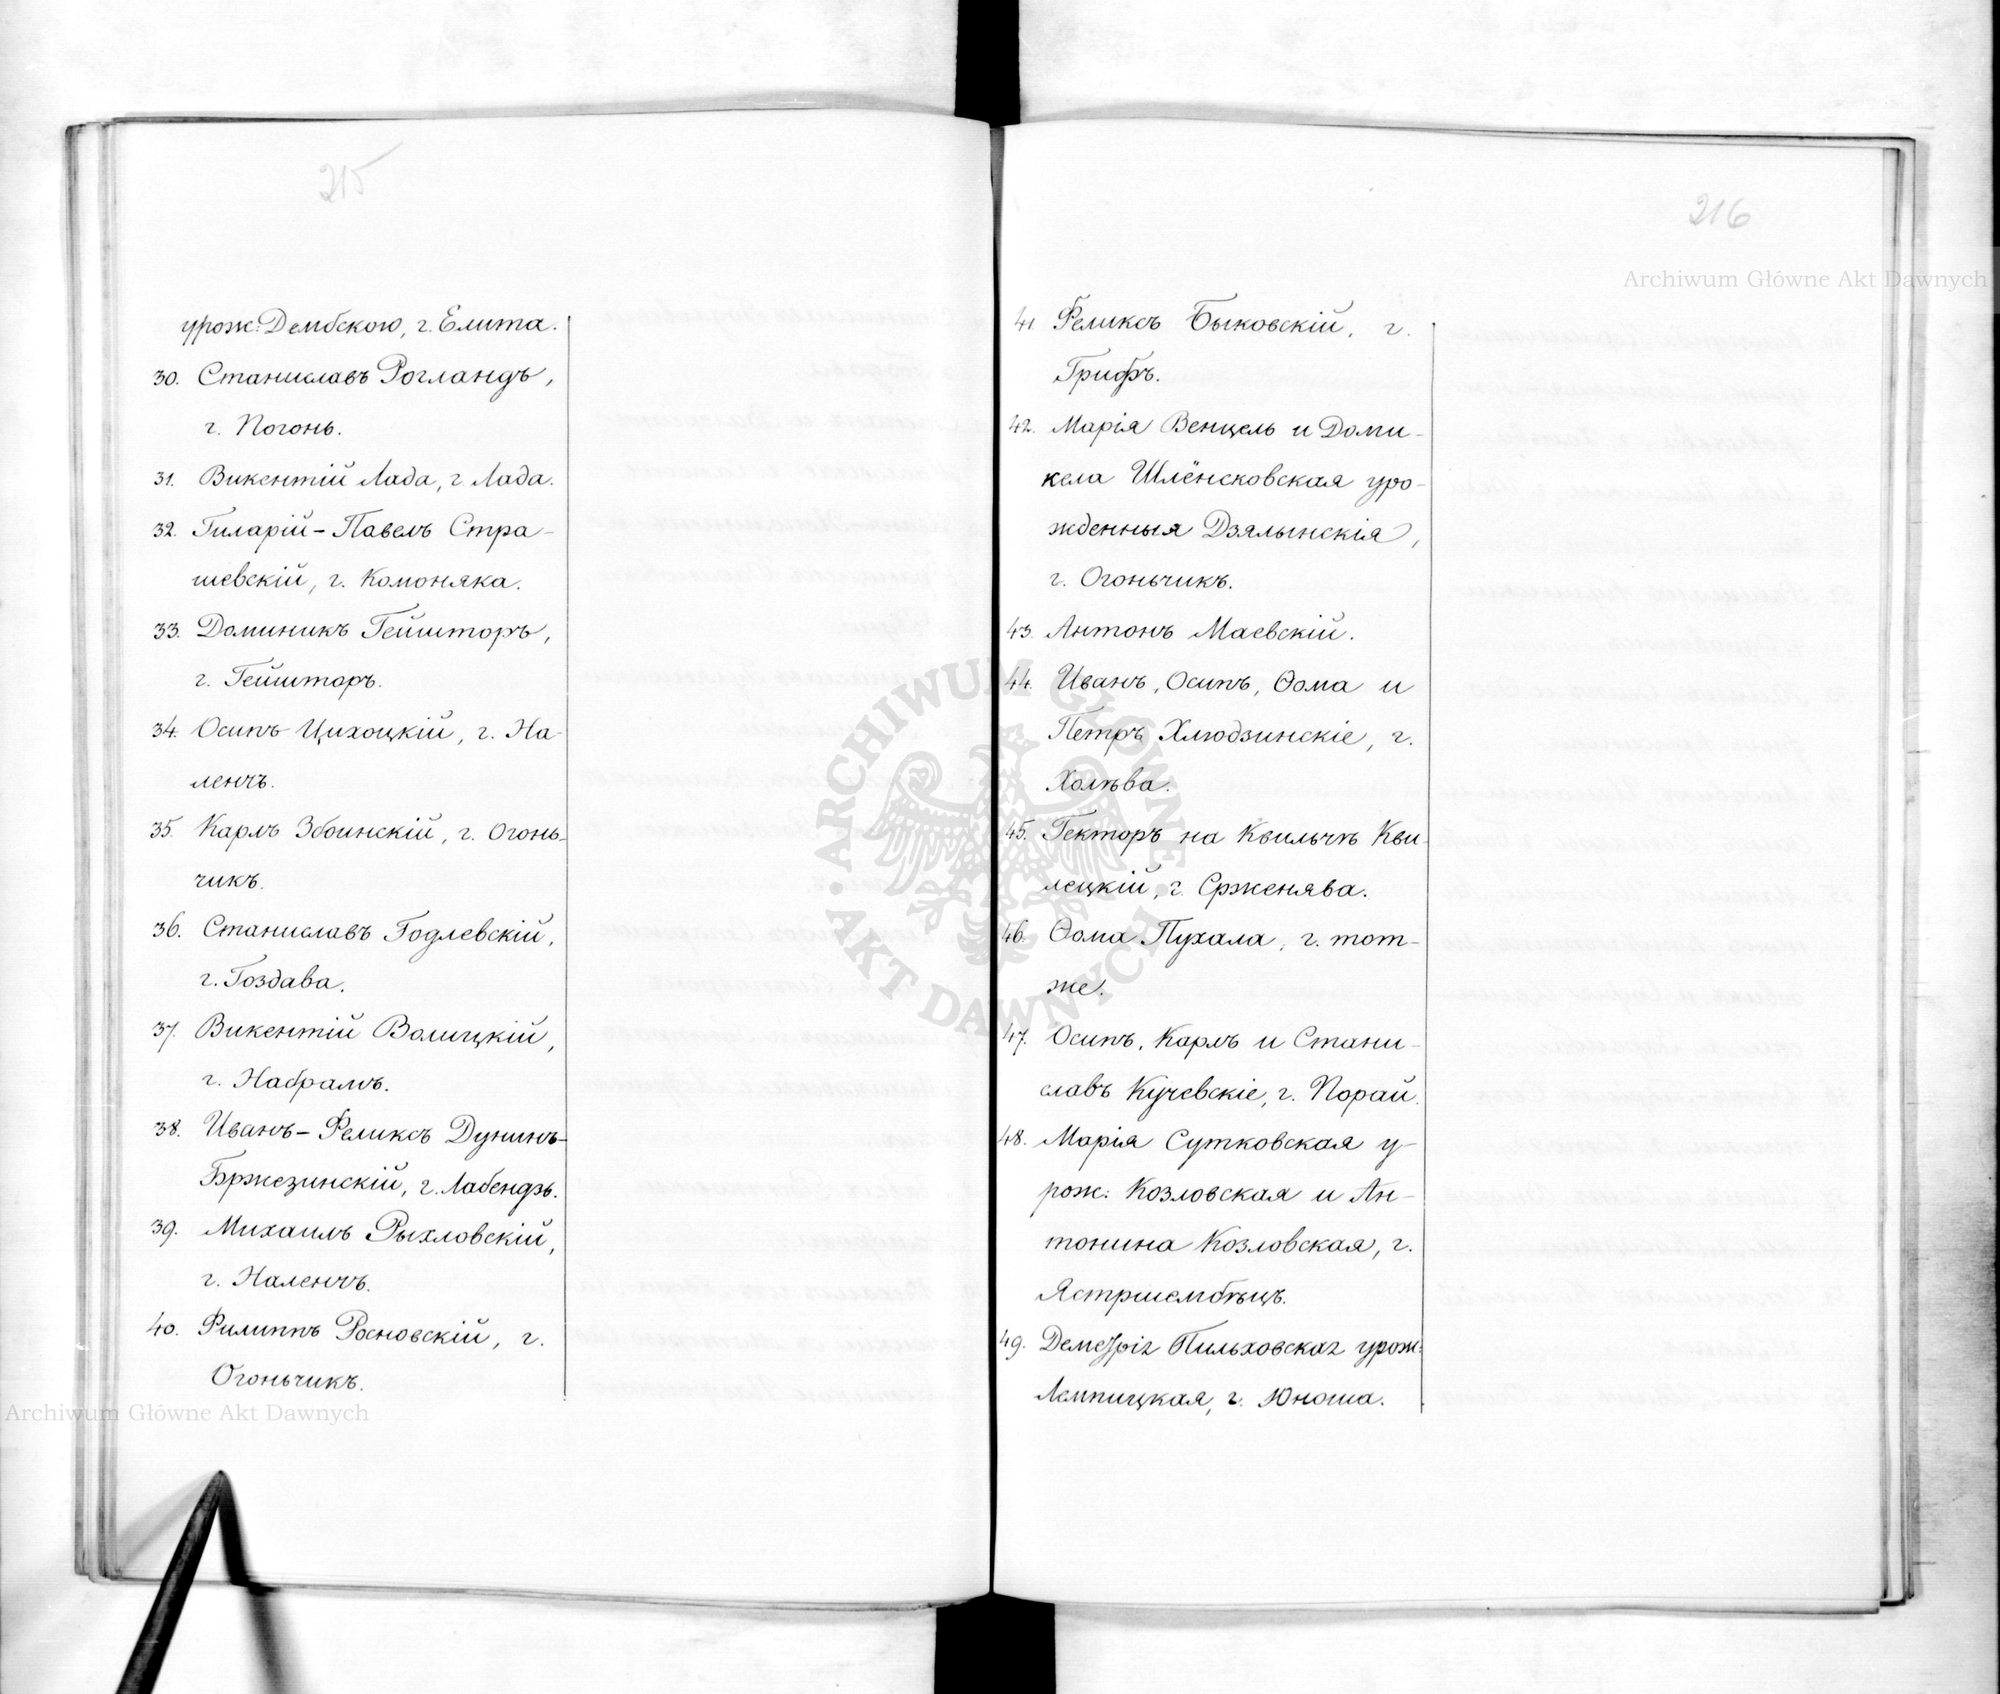 215
урож: Дембскою, г. Елита.
30. Станиславъ Рогландъ,
г. Погонь.
31. Викентій Лада, г. Лада.
32. Гиларій-Павелъ Стра-
шевскій, г. Комоняка.
33. Доминикъ Гейшторъ,
г. Гейшторъ.
34. Осипъ Цихоцкій, г. На-
ленчъ.
35. Карлъ Збоинскій, г. Огонь-
чикъ.
36. Станиславъ Годлевскій,
г. Гоздава.
37. Викентій Волицкій,
г. Набрамъ.
38. Иванъ-Феликсъ Дунинъ-
Бржезинскій, г. Лабендзь.
39. Михаилъ Рыхловскій,
г. Наленчъ.
40. Филиппъ Росновскій, г.
Огоньчикъ.
Archiwum Główne Akt Dawnych
216
Archiwum Główne Akt Dawnych
41. Феликсъ Быковскій, г.
Грифъ.
42. Марія Венцель и Доми-
кела Шлёнсковская уро-
жденныя Дзялынскія,
г. Огоньчикъ.
43. Антонъ Маевскій.
44. Иванъ, Осипъ, Ѳома и
Петръ Хлюдзинскіе, г.
Холѣва.
45. Гекторъ на Квильчѣ Кви-
лецкій, г. Срженява.
46. Ѳома Пухала, г. тот-
же.
47. Осипъ, Карлъ и Стани-
славъ Кучевскіе, г. Порай.
48. Марія Сутковская у-
рож: Козловская и Ан-
тонина Козловская, г.
Ястршембѣцъ.
49. Деметрія Пильховская урож:
Лемпицкая, г. Юноша.
ARCHIWUM GŁÓWNE AKT DAWNYCH